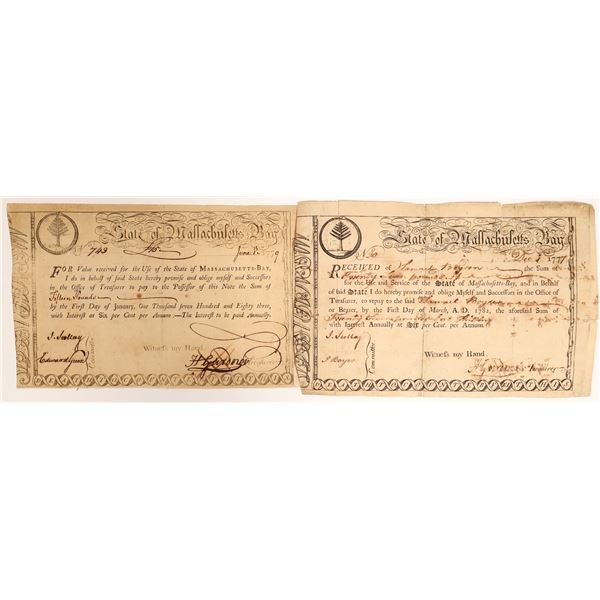 State of Massachusetts Bay
No 743 £15 June 1st 1779
FOR Value received for the Use of the State of MASSACHUSETTS-BAY,
I do in behalf of said State hereby promise and oblige myself and Successors
in the Office of Treasurer to pay to the Possessor of this Note the Sum of
Fifteen Pounds
by the First Day of January, One Thousand seven Hundred and Eighty three,
with Interest at Six per Cent per Annum.—The Interest to be paid Annually.
Witness my Hand
Committee
H Gardner
State of Massachusetts Bay
No Dec 1 1777
RECEIVED of the Sum of
for the Use and Service of the State of Massachusetts-Bay, and in Behalf
of said State I do hereby promise and oblige Myself and Successors in the Office of
Treasurer, to repay to the said
or Bearer, by the First Day of March, A. D. 1782, the aforesaid Sum of
with Interest Annually at Six per Cent. per Annum.
Witness my Hand
Committee
H Gardner Treasurer